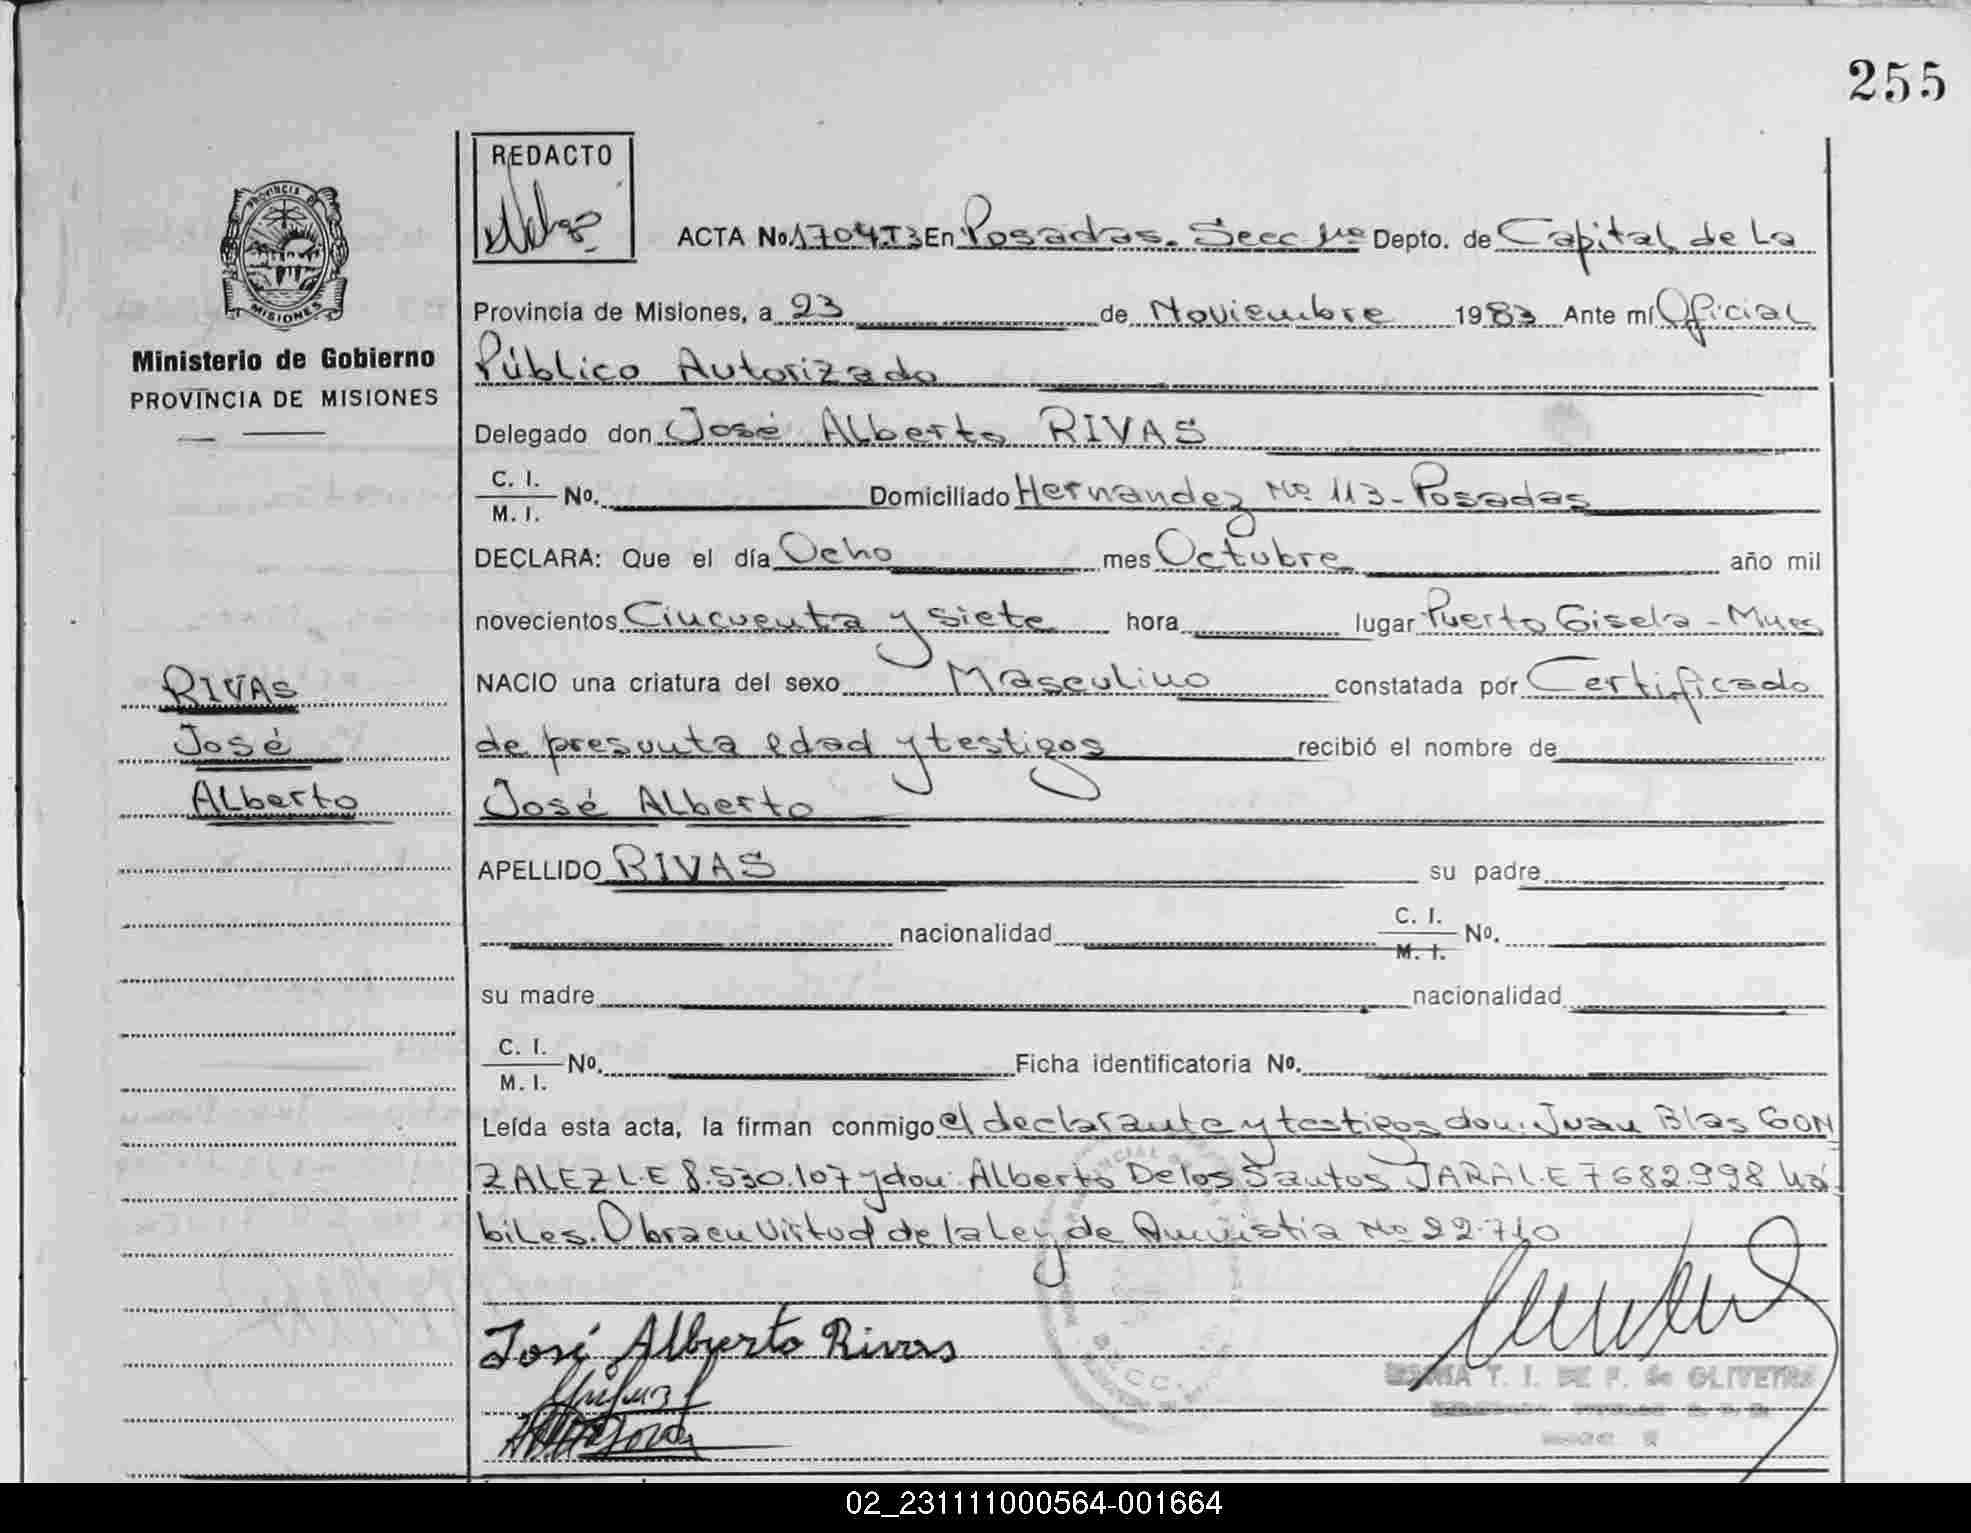 255
REDACTO
PROVINCIA DE
MISIONES
Ministerio de Gobierno
PROVINCIA DE MISIONES
ACTA No. 1704T3 En Posadas. Secc 1ra Depto. de Capital de La
Provincia de Misiones, a 23 de Noviembre 1983 Ante mí Oficial
Público Autorizado
Delegado don José Alberto RIVAS
C. I.
M. I. No. Domiciliado Hernandez No 113 - Posadas
DECLARA: Que el día Ocho mes Octubre año mil
novecientos Cincuenta y siete hora lugar Puerto Gisela - Mnes
NACIO una criatura del sexo Masculino constatada por Certificado
de presunta edad y testigos recibió el nombre de
José Alberto
APELLIDO RIVAS su padre
nacionalidad C. I.
M. I. No.
su madre nacionalidad
C. I.
M. I. No. Ficha identificatoria No.
Leída esta acta, la firman conmigo el declarante y testigos don: Juan Blas GON
ZALEZ L.E 8.530.107 y don: Alberto De los Santos JARA L.E 7682.998 há
biles. Obra en Virtud de la Ley de Amnistia No 22.710
RIVAS
José
Alberto
José Alberto Rivas
T. I. DE F. de OLIVEIRA
02_231111000564-001664